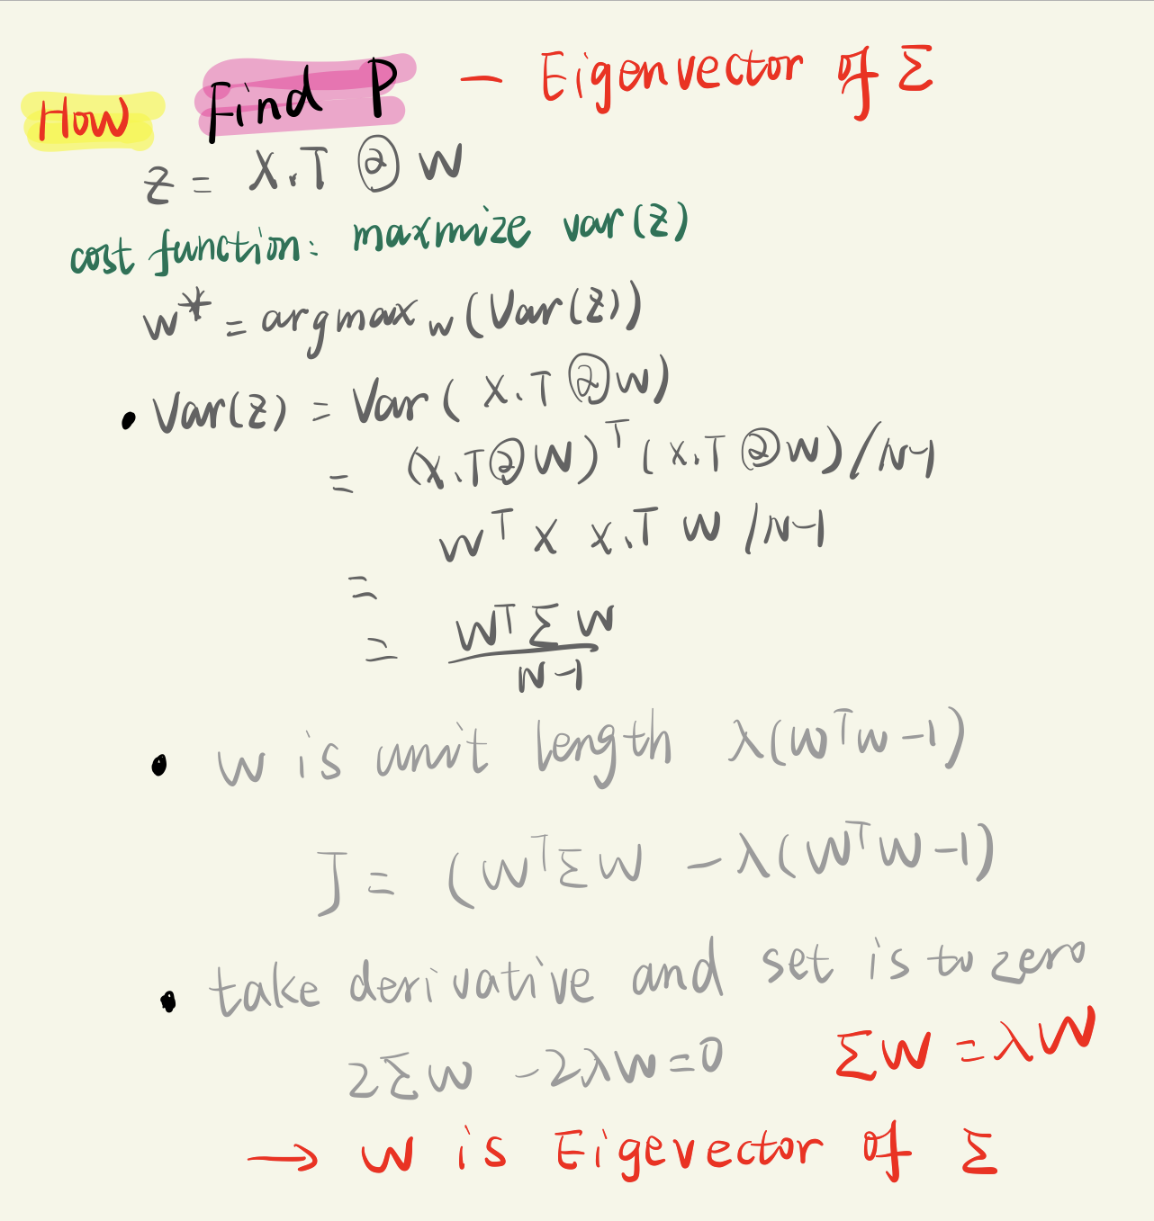 How Find P - Eigenvector of Σ
z = X.T @ w
cost function: maxmize var(z)
w* = argmax w (Var(z))
• Var(z) = Var( X.T @ w)
= (X.T @ W)ᵀ (X.T @ w) / N-1
= wᵀ X X.T w / N-1
= Wᵀ Σ W / N-1
• w is unit length λ(wᵀw -1)
J = (wᵀΣw - λ(wᵀw -1)
• take derivative and set is to zero
2Σw - 2λw = 0 Σw = λw
→ w is Eigevector of Σ